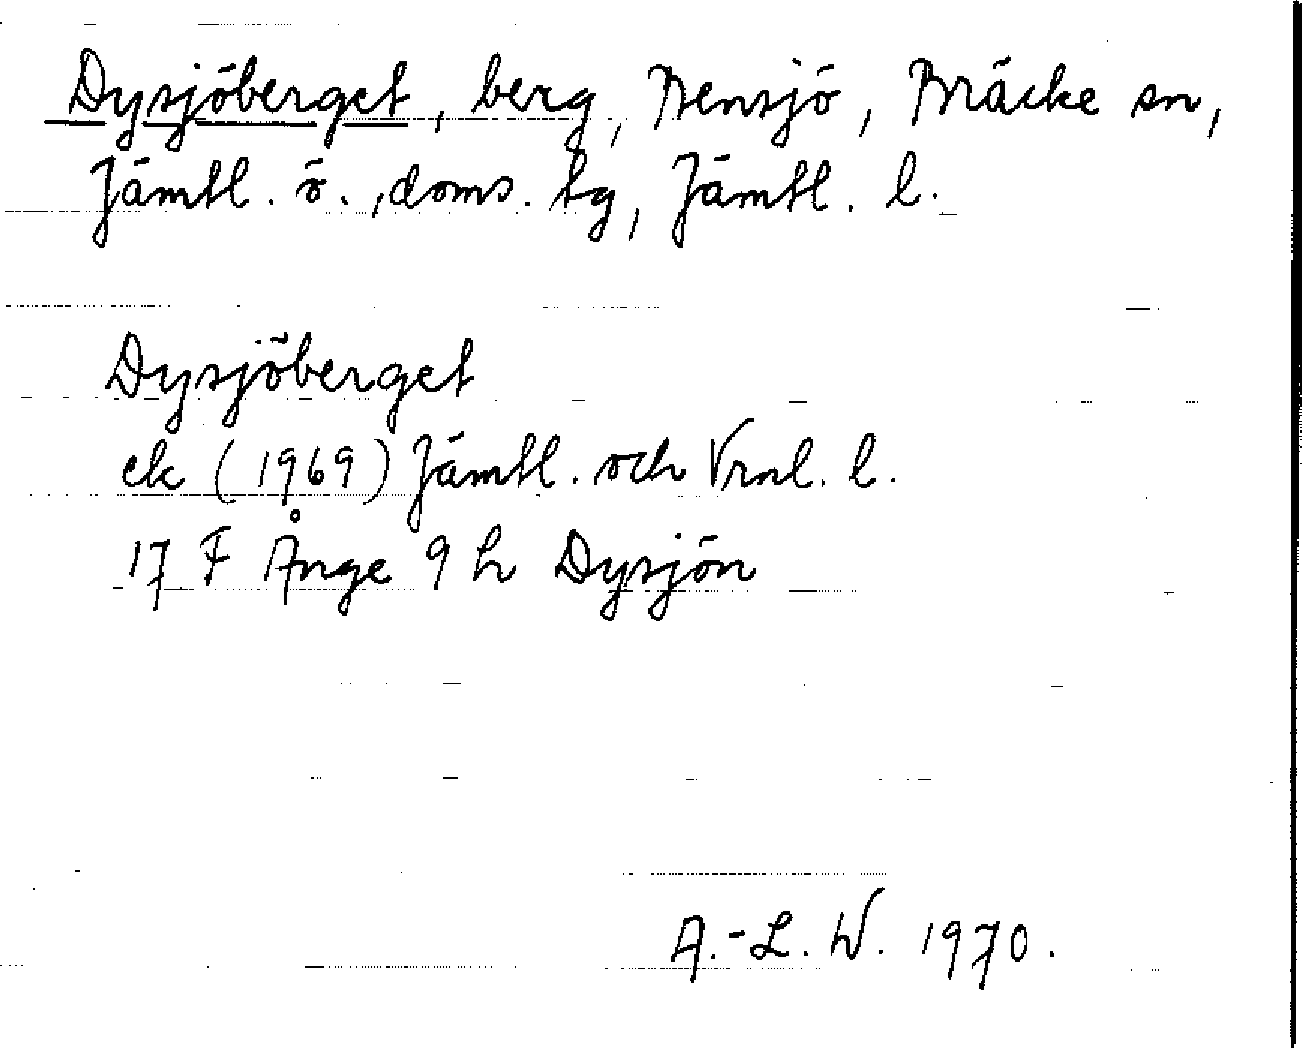 Dysjöberget, berg, Bensjö, Bräcke sn,
Jämtl. ö., doms. tg, Jämtl. l.
Dysjöberget
ek (1969) Jämtl. och Vrnl. l.
17 F Ånge 9 h Dysjön
A.-L. W. 1970.